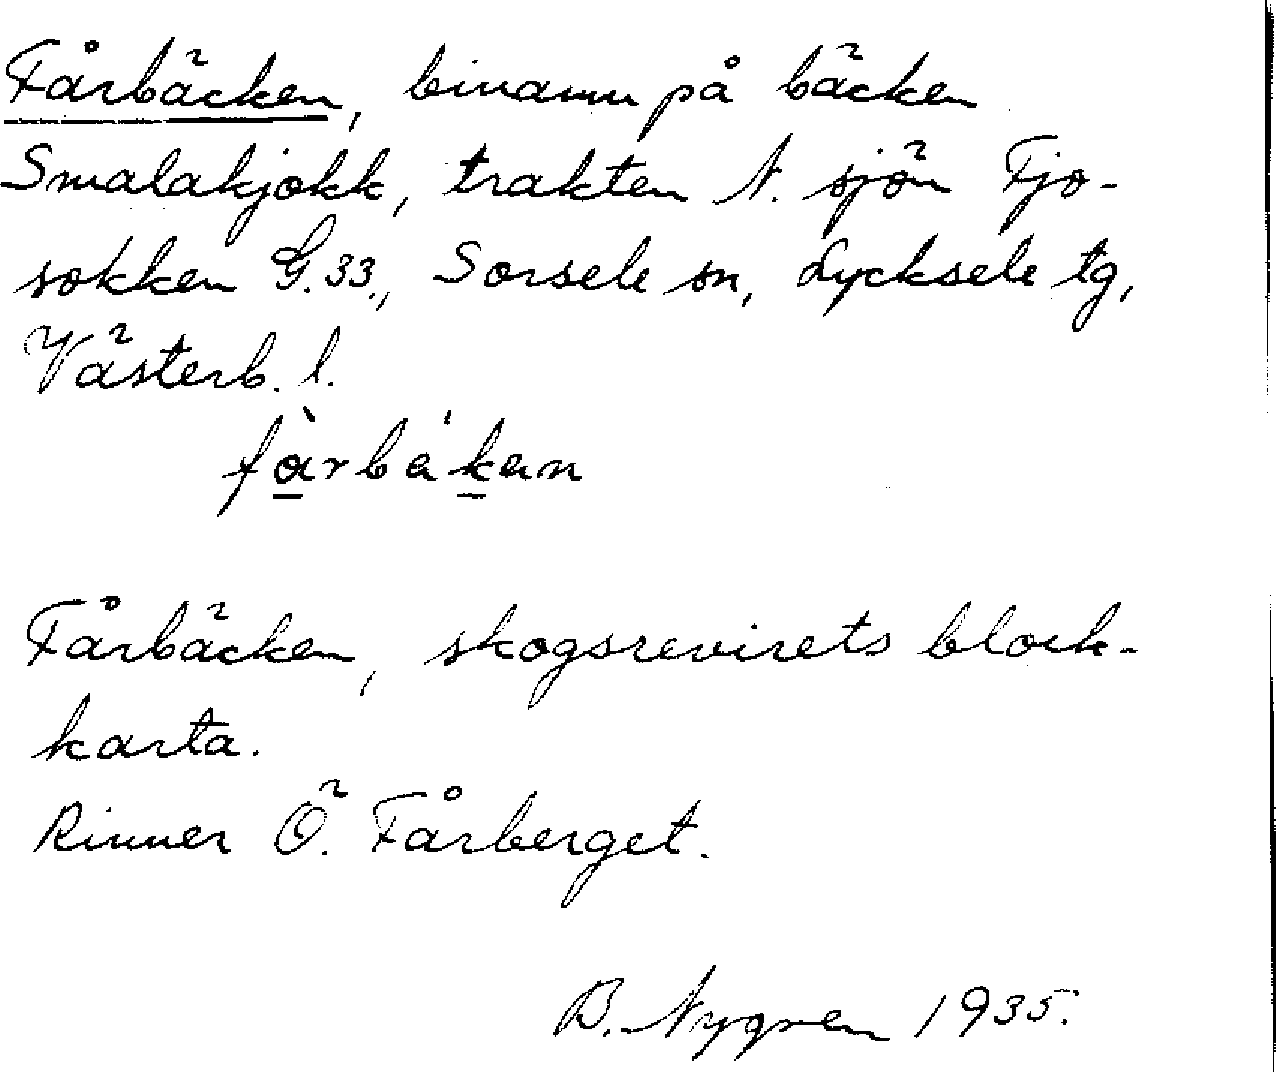 Fårbäcken, binamn på bäcken
Smalakjokk, trakten N. sjön Fjo-
sokken G.33., Sorsele sn, Lycksele tg,
Västerb. l.
fårbäkan
Fårbäcken, skogsrevirets block-
karta.
Rinner Ö. Fårberget.
B. Nygren 1935.